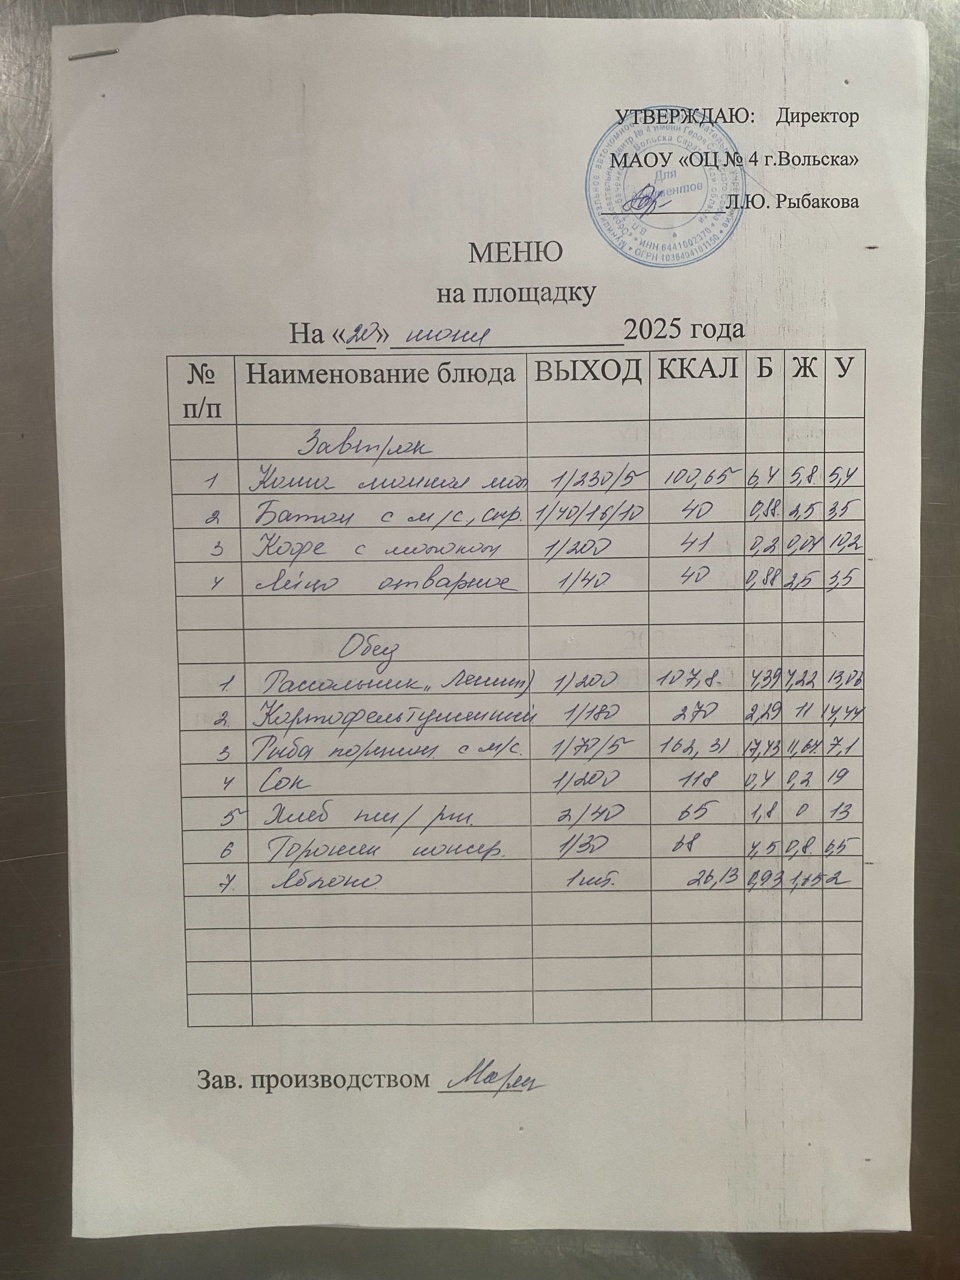 УТВЕРЖДАЮ: Директор
МАОУ «ОЦ № 4 г.Вольска»
Л.Ю. Рыбакова
Для документов
ИНН 6441007370 * ОГРН 1036404101150
МЕНЮ
на площадку
На «20» июня 2025 года
№ п/п Наименование блюда ВЫХОД ККАЛ Б Ж У
Завтрак
1 Каша манная мол 1/230/5 100,65 6,4 5,8 5,4
2 Батон с м/с, сыр. 1/40/16/10 40 0,88 2,5 3,5
3 Кофе с молоком 1/200 41 0,2 0,04 10,2
4 Яйцо отварное 1/40 40 0,88 2,5 3,5
Обед
1 Рассольник „Ленинг) 1/200 107,8 4,39 4,22 13,06
2 Картофель тушенный 1/180 270 2,29 11 14,44
3 Рыба порцион. с м/с. 1/70/5 162,31 17,43 11,64 7,1
4 Сок 1/200 118 0,4 0,2 19
5 Хлеб пш/рж. 2/40 65 1,8 0 13
6 Горошек консер. 1/30 68 4,5 0,8 6,5
7 Яблоко 1 шт. 26,13 0,93 2
Зав. производством